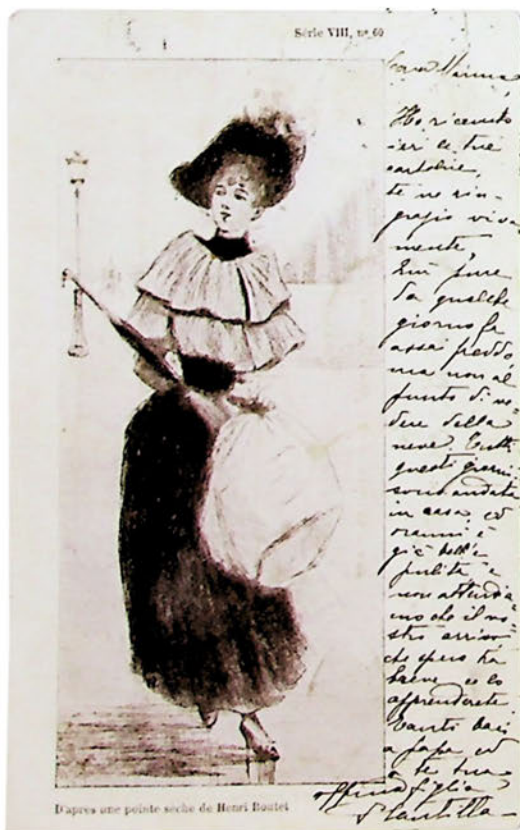 Série VIII, nº 60
Cara Mamma,
Ho ricevuto
ieri le tue
cartoline,
te ne rin-
grazio viva-
mente,
Qui pure
da qualche
giorno fa
assai freddo
ma non al
punto di ve-
dere della
neve. Tutti
questi giorni
sono andata
in casa ed
oramai è
già bell'e
pulita e
non attendia-
mo che il vo-
stro arrivo
che spero tra
breve ce lo
apprenderete
Tanti baci
a papa ed
a te tua
aff.ma figlia
D'après une pointe sèche de Henri Boutet